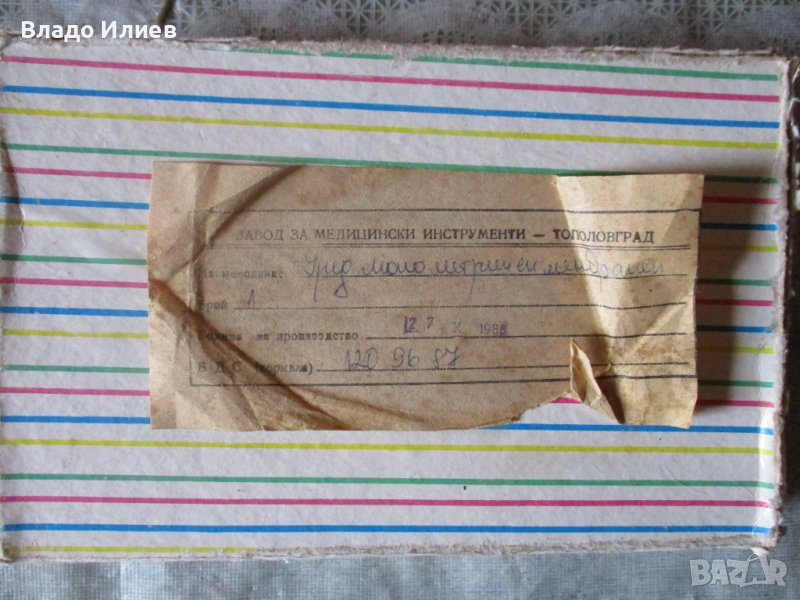 Владо Илиев
ЗАВОД ЗА МЕДИЦИНСКИ ИНСТРУМЕНТИ — ТОПОЛОВГРАД
Наименование Уред манометричен мембранен
Брой 1
Година на производство X 1988
Б Д С (нормали) 120 96 87
BAZAR